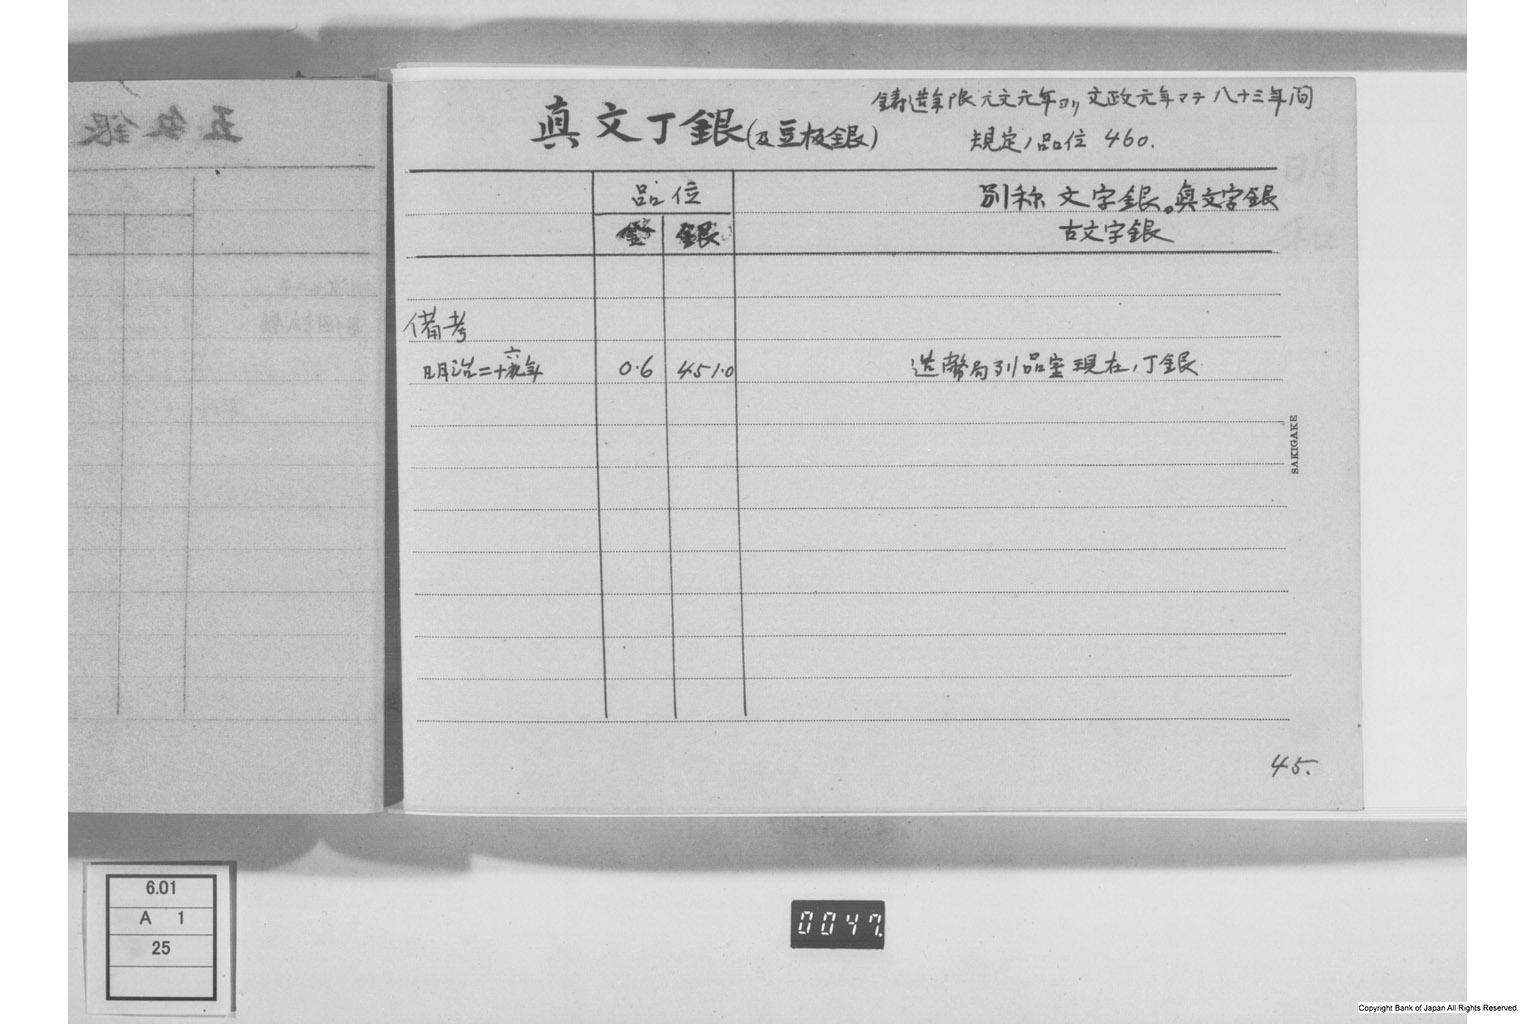 鋳造年限 元文元年ヨリ文政元年マテ八十三年間
眞文丁銀(及豆板銀)
規定ノ品位 460.
品位
別称 文字銀。眞文字銀
金 銀
古文字銀
備考
明治二十六年 0.6 451.0 造幣局列品室現在ノ丁銀
SAKIGAKE
45.
6.01
A 1
25
0047.
Copyright Bank of Japan All Rights Reserved.